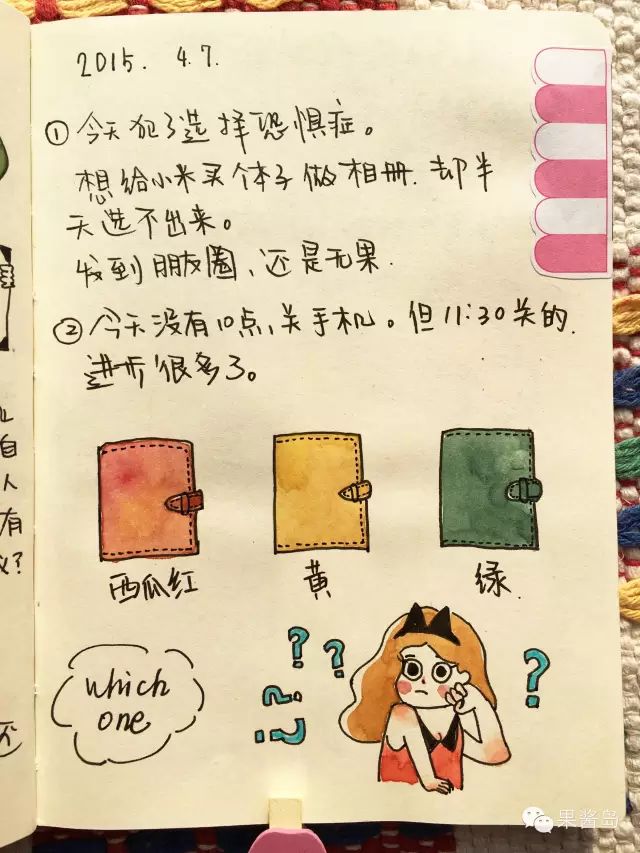 2015. 4.7.
① 今天犯了选择恐惧症。
想给小米买个本子做相册.却半
天选不出来。
发到朋友圈、还是无果.
② 今天没有10点关手机。但11:30关的.
进步很多了。
西瓜红 黄 绿.
which
one
? ? ? ? ? ?
自
人
有
果酱岛